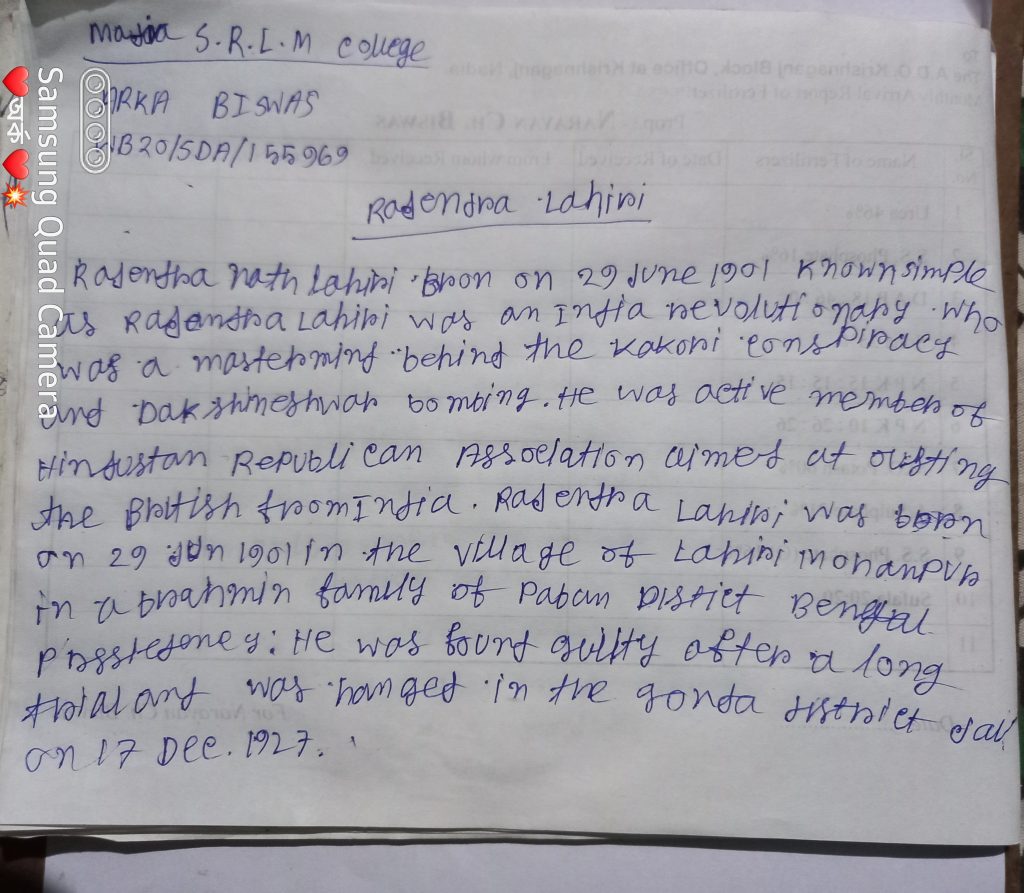 Majdia S.R.L.M College
ARKA BISWAS
WB20/SDA/155969
Rajendra Lahiri
Rajentra nath Lahiri bron on 29 June 1901 Known simple
as Rajendra Lahiri was an Indta revolutionary who
was a mastermind behind the Kakori conspiracy
and Dakshineshwar bombing. He was active member of
Hindustan Republican Association aimed at ousting
the British from India. Rajendra Lahiri was born
on 29 Jun 1901 in the village of Lahiri mohanpur
in a brahmin family of Paban District Bengal
He was found guilty after a long
trial and was hanged in the gonda district jail
on 17 Dec. 1927.
Samsung Quad Camera
❤️অর্ক❤️💥
To
The A.D.O. Krishnaganj Block, Office at Krishnaganj, Nadia
Monthly Arrival Report of Fertilizer
Prop.- NARAYAN CH. BISWAS
Name of Fertilizers Date of Received From whom Received